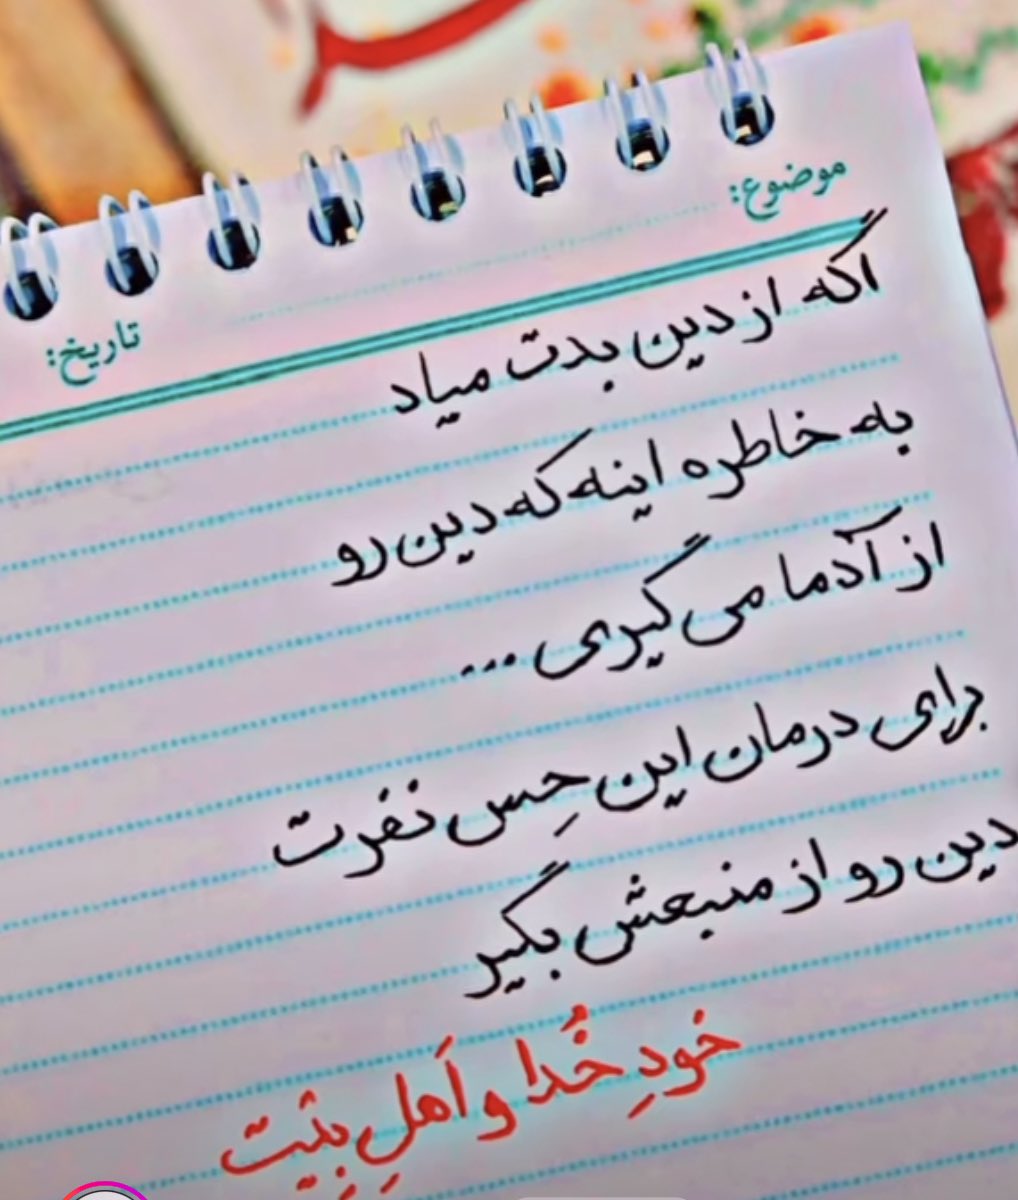 موضوع:
تاریخ:
اگه از دین بدت میاد
به خاطره اینه که دین رو
از آدما می گیری ...
برای درمان این حِس نفرت
دین رو از منبعش بگیر
خودِ خُدا و اَهلِ بِیت